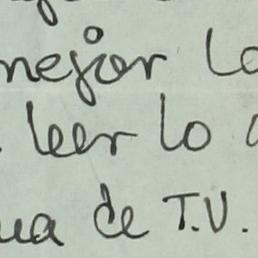 mejor lo
leer lo
de T.V.